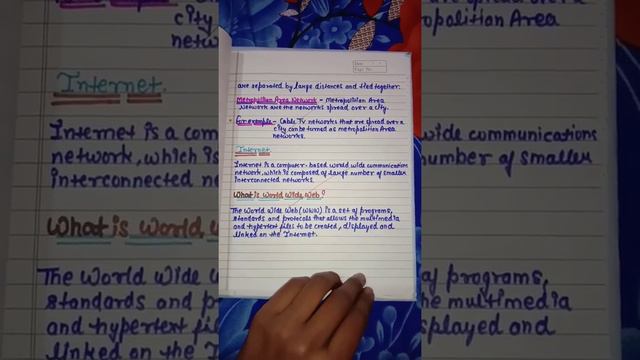 Date
Page No.
are separated by large distances and tied together.
Metropolitan Area Network - Metropolitan Area
Network are the networks spread over a city.
For example - Cable TV networks that are spread over a
city can be turned as metropolitan Area
networks.
Internet.
Internet is a computer-based world wide communication
network, which is composed of large number of smaller
interconnected networks.
What is World Wide Web?
The World Wide Web (WWW) is a set of programs,
standards and protocols that allows the multimedia
and hypertext files to be created, displayed and
linked on the Internet.